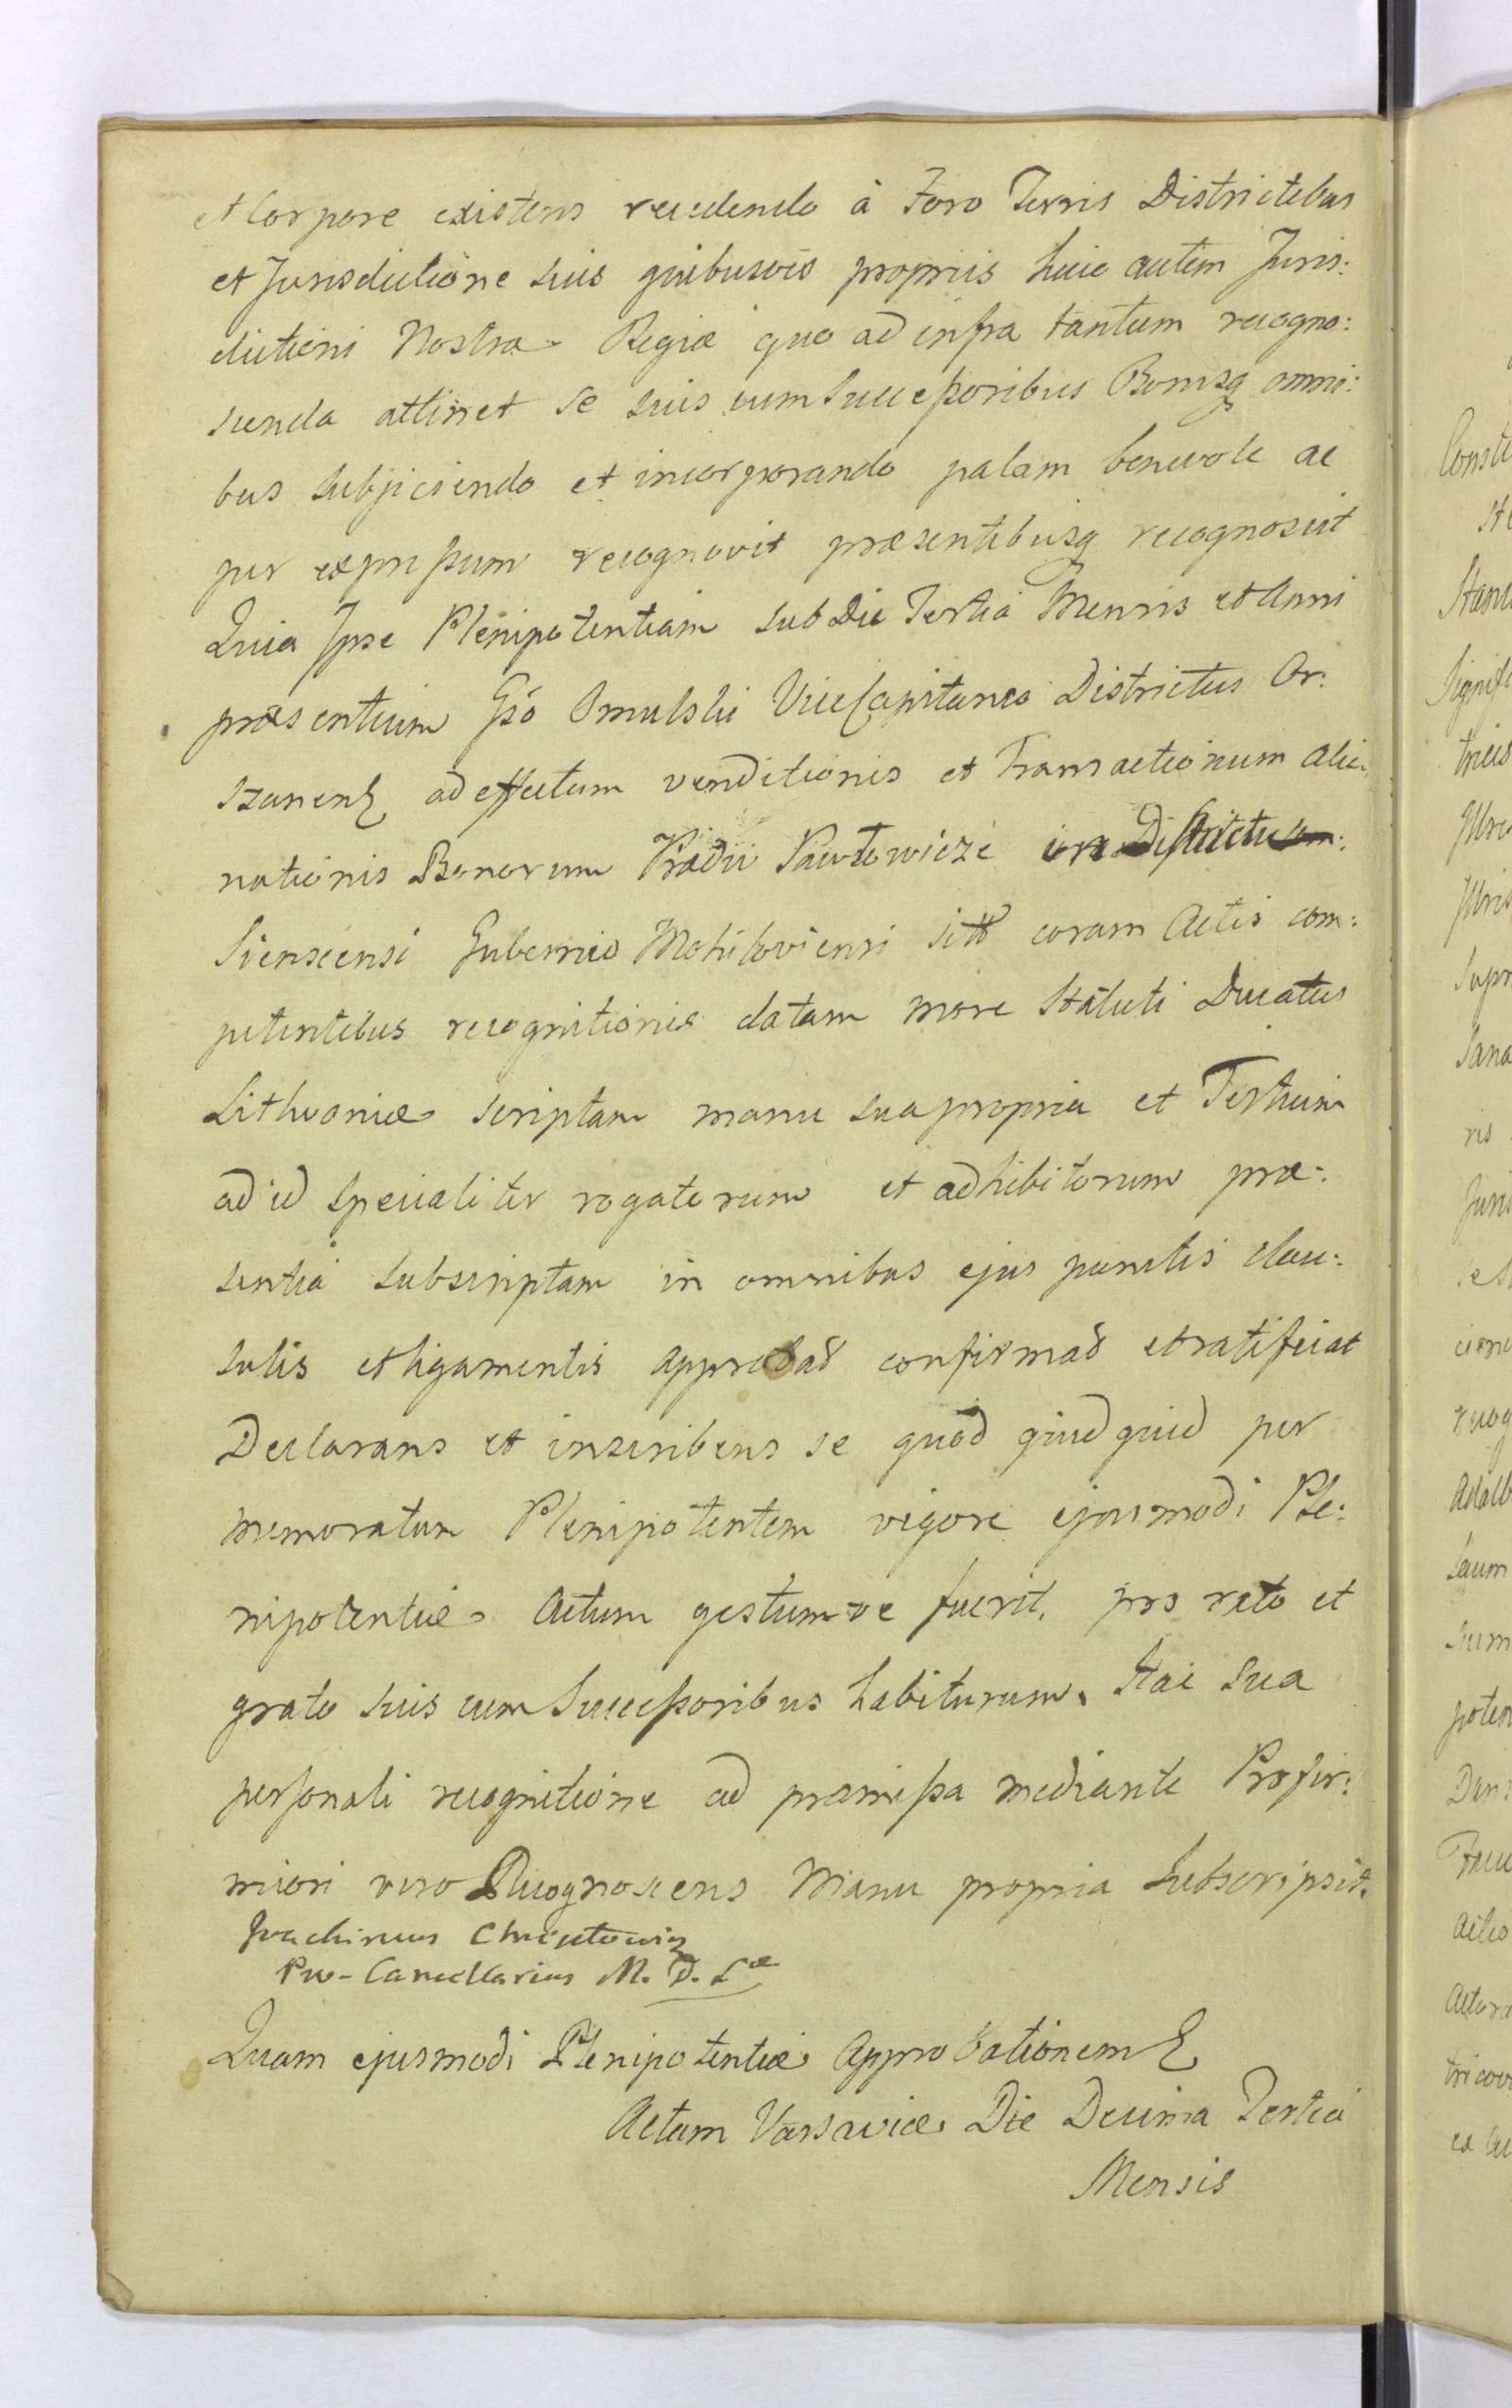 et Corpore existens recedendo à Foro Terris Districtibus
et Jurisdictione suis quibusvis propriis huic autem Juris:
dictioni Nostræ Regiæ quo ad infra tantum recogno:
scenda attinet se suis cum Successoribus Bonisq omni:
bus subjiciendo et incorporando palam benevole ac
per expressum recognovit præsentibusq recognoscit
Quia Ipse Plenipotentiam sub Die Tertia Mensis et Anni
præsentium Gso Omulski ViceCapitaneo Districtus Or:
szanen ad effectum venditionis et Transactionum alie:
nationis Bonorum Prædii Pawłowicze in Districtu
Sienscensi Gubernio Mohiloviensi sitt coram Actis com:
petentibus recognitionis datam more Statuti Ducatus
Lithvaniæ scriptam manu sua propria et Testium
ad id specialiter rogatorum et adhibitorum præ:
sentiá subscriptam in omnibus ejus punctis clau:
sulis et ligamentis approbat confirmat et ratificat
Declarans et inscribens se quod quidquid per
memoratum Plenipotentem vigore ejusmodi Ple:
nipotentiæ Actum gestumve fuerit, pro rato et
grato suis cum Successoribus habiturum. Hac sua
personali recognitione ad præmissa mediante Pro fir:
miori vero Recognoscens Manu propria Subscripsit.
Joachimus Chreptowicz
Pro-Cancellarius M. D. Læ
Quam ejusmodi Plenipotentiæ Approbationem
Actum Varsaviæ Die Decima Tertia
Mensis